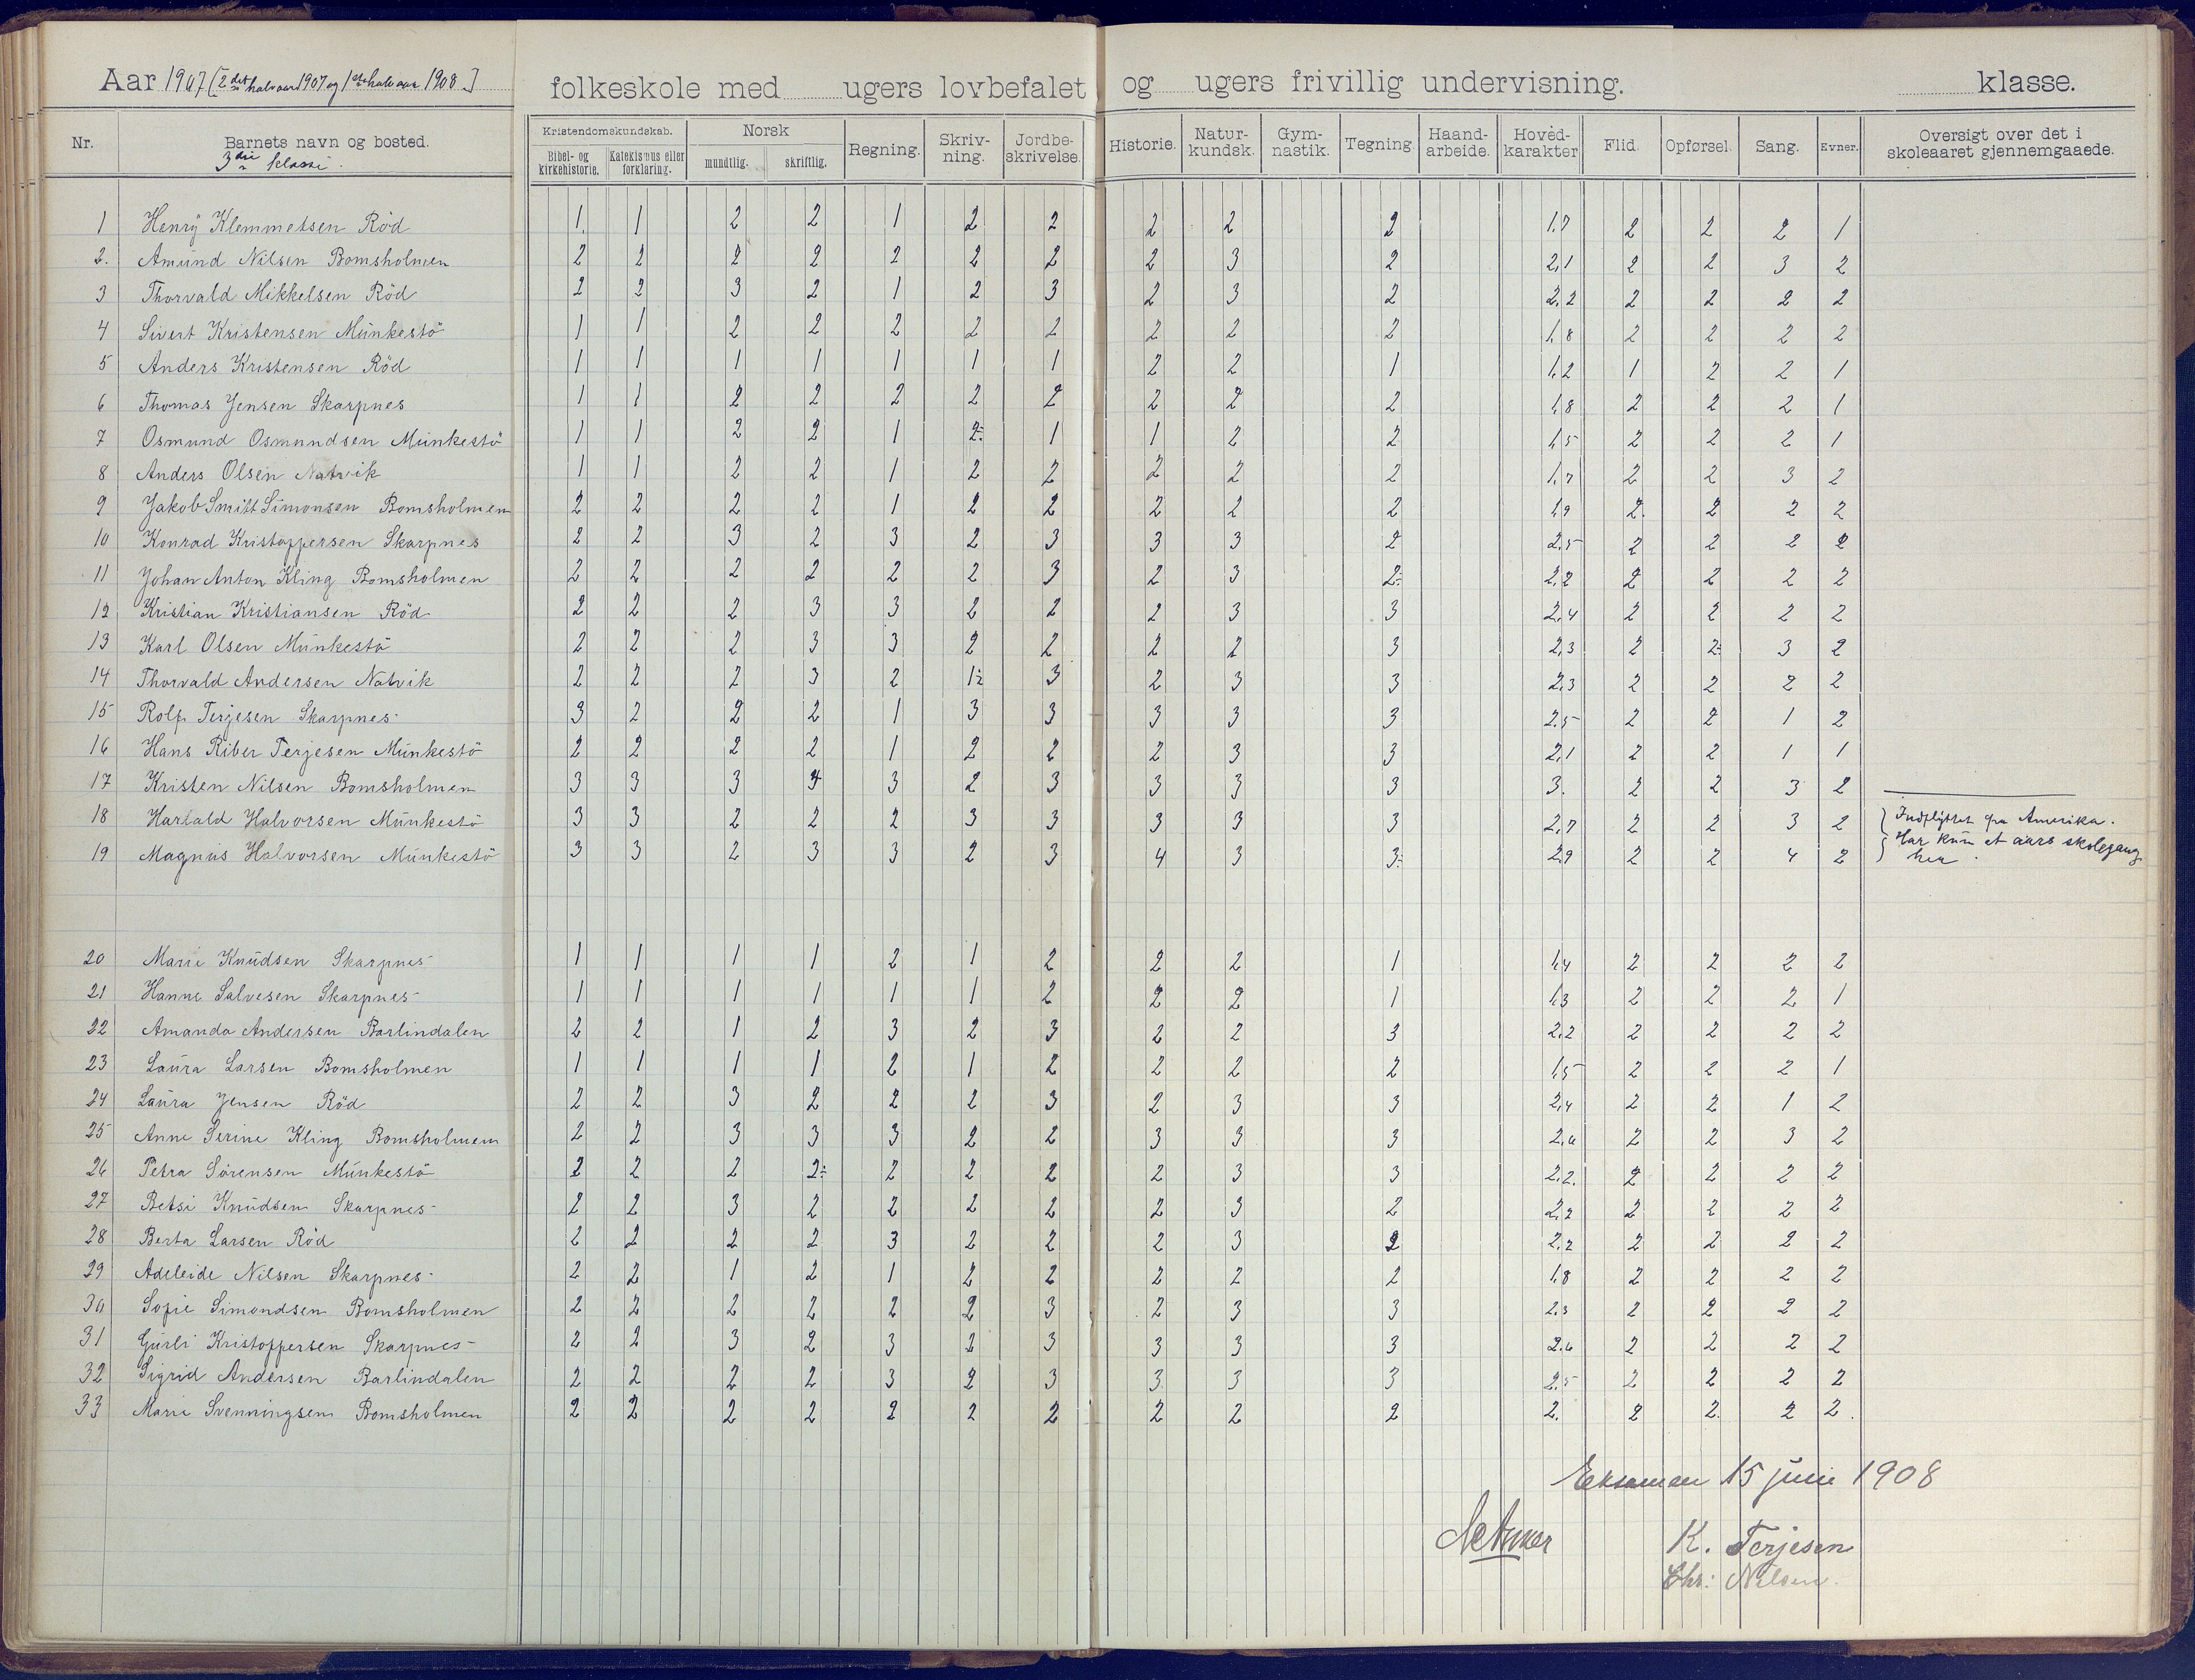 Aar 1907 [2det halvaar 1907 og 1ste halvaar 1908] folkeskole med ugers lovbefalet og ugers frivillig undervisning. klasse.
Nr. Barnets navn og bosted. Kristendomskundskab. Bibel- og kirkehistorie. Katekismus eller forklaring. Norsk mundtlig. skriftlig. Regning. Skriv-ning. Jordbe-skrivelse. Historie. Natur-kundsk. Gym-nastik. Tegning. Haand-arbeide. Hoved-karakter Flid. Opførsel. Sang. Evner. Oversigt over det i skoleaaret gjennemgaaede.
3die klasse.
1 Henry Klemmetsen Röd 1. 1 2 2 1 2 2 2 2 2 1,7 2 2 2 1
2. Amund Nilsen Bomsholmen 2 2 2 2 2 2 2 2 3 2 2,1 2 2 3 2
3 Thorvald Mikkelsen Röd 2 2 3 2 1 2 3 2 3 2 2,2 2 2 2 2
4 Sivert Kristensen Munkestö 1 1 2 2 2 2 2 2 2 2 1,8 2 2 2 2
5 Anders Kristensen Röd 1 1 1 1 1 1 1 2 2 1 1,2 1 2 2 1
6 Thomas Jensen Skarpnes 1 1 2 2 2 2 2 2 2 2 1,8 2 2 2 1
7 Osmund Osmundsen Munkestö 1 1 2 2 1 2÷ 1 1 2 2 1,5 2 2 2 1
8 Anders Olsen Natvik 1 1 2 2 1 2 2 2 2 2 1,7 2 2 3 2
9 Jakob Smitt Simonsen Bomsholmen 2 2 2 2 1 2 2 2 2 2 1,9 2. 2 2 2
10 Konrad Kristoffersen Skarpnes 2 2 3 2 3 2 3 3 3 2 2,5 2 2 2 2
11 Johan Anton Kling Bomsholmen 2 2 2 2 2 2 3 2 3 2÷ 2,2 2 2 2 2
12 Kristian Kristiansen Röd 2 2 2 3 3 2 2 2 3 3 2,4 2 2 2 2
13 Karl Olsen Munkestö 2 2 2 3 3 2 2 2 2 3 2,3 2 2÷ 3 2
14 Thorvald Andersen Natvik 2 2 2 3 2 1÷ 3 2 3 3 2,3 2 2 2 2
15 Rolf Terjesen Skarpnes 3 2 2 2 1 3 3 3 3 3 2,5 2 2 1 2
16 Hans Riber Terjesen Munkestö 2 2 2 2 1 2 2 2 3 3 2,1 2 2 1 1
17 Kristen Nilsen Bomsholmen 3 3 3 4 3 2 3 3 3 3 3. 2 2 3 2
18 Harald Halvorsen Munkestö 3 3 2 2 2 3 3 3 3 3 2,7 2 2 3 2 Indflyttet fra Amerika.
19 Magnus Halvorsen Munkestö 3 3 2 3 3 2 3 4 3 3÷ 2,9 2 2 4 2 Har kun et aars skolegang her.
20 Marie Knudsen Skarpnes 1 1 1 1 2 1 2 2 2 1 1,4 2 2 2 2
21 Hanne Salvesen Skarpnes 1 1 1 1 1 1 2 2 2 1 1,3 2 2 2 1
22 Amanda Andersen Barlindalen 2 2 1 2 3 2 3 2 2 3 2,2 2 2 2 2
23 Laura Larsen Bomsholmen 1 1 1 1 2 1 2 2 2 2 1,5 2 2 2 1
24 Laura Jensen Röd 2 2 3 2 2 2 3 2 3 3 2,4 2 2 1 2
25 Anne Serine Kling Bomsholmen 2 2 3 3 3 2 2 3 3 3 2,6 2 2 3 2
26 Petra Sörensen Munkestö 2 2 2 2÷ 2 2 2 2 3 3 2,2. 2 2 2 2
27 Betsi Knudsen Skarpnes 2 2 3 2 2 2 2 2 3 2 2,2 2 2 2 2
28 Berta Larsen Röd 2 2 2 2 3 2 2 2 3 2 2,2 2 2 2 2
29 Adeleide Nilsen Skarpnes 2 2 1 2 1 2 2 2 2 2 1,8 2 2 2 2
30 Sofie Simondsen Bomsholmen 2 2 2 2 2 2 3 2 3 3 2,3 2 2 2 2
31 Gurli Kristoffersen Skarpnes 2 2 3 2 3 2 3 3 3 3 2,6 2 2 2 2
32 Sigrid Andersen Barlindalen 2 2 2 2 3 2 3 3. 3 3 2,5 2 2 2 2
33 Marie Svenningsen Bomsholmen 2 2 2 2 2 2 2 2 2 2 2. 2 2. 2 2.
Eksamen 15 juni 1908
K. Terjesen
Chr: Nilsen.